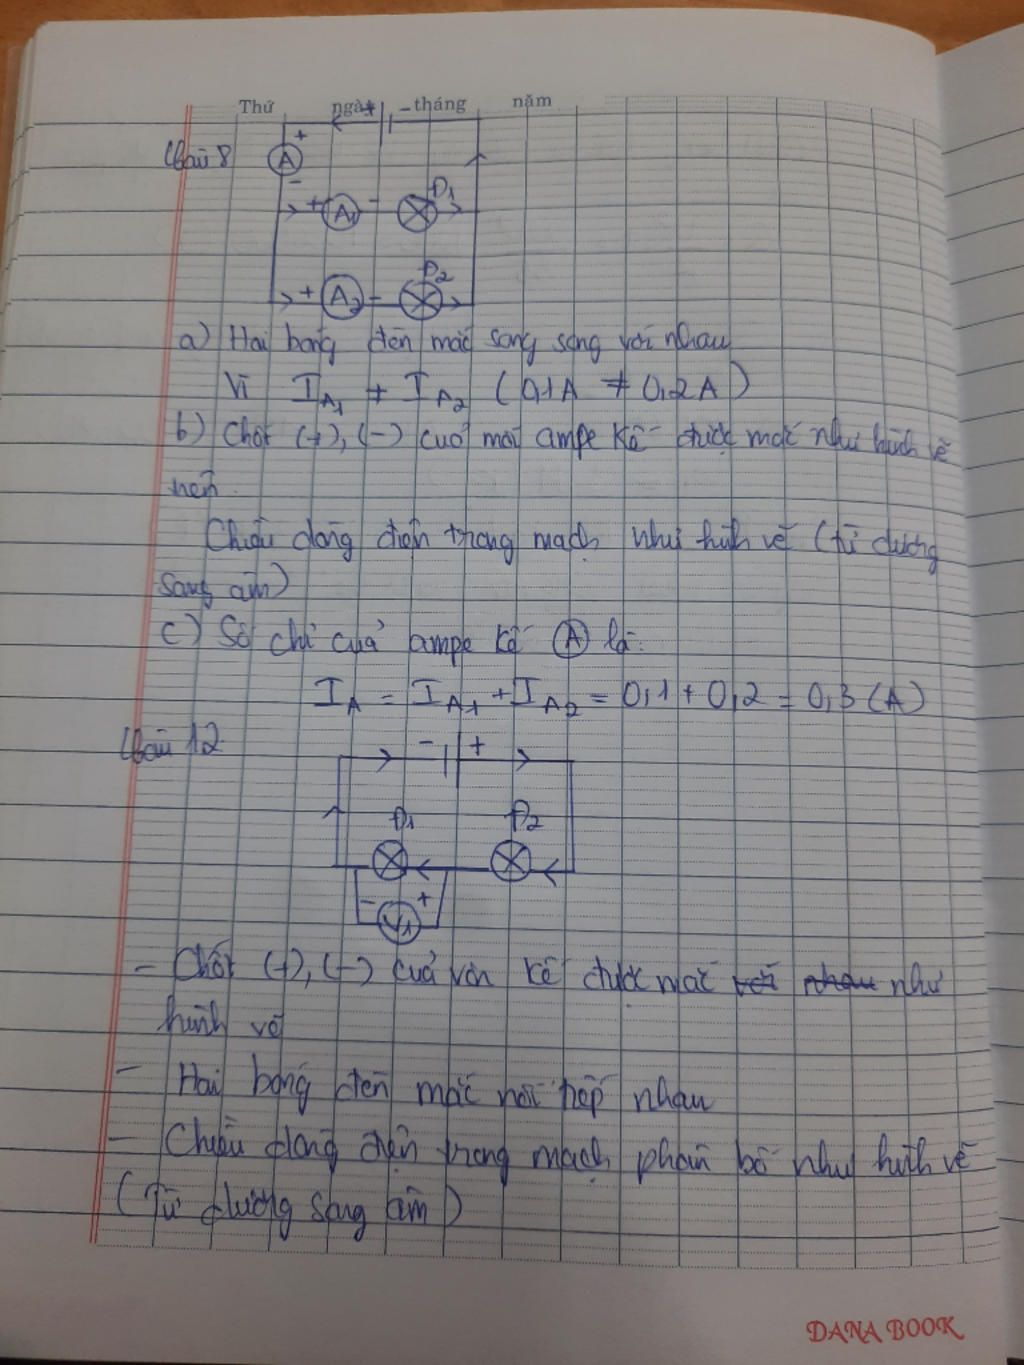 Thứ ngày tháng năm
+ -
Câu 8 A +
-
+ A1 - Đ1
+ A2 - Đ2
a) Hai bóng đèn mắc song song với nhau
Vì I_A1 ≠ I_A2 (0,1A ≠ 0,2A)
b) Chốt (+), (-) của mỗi ampe kế được mắc như hình vẽ
nên
Chiều dòng điện trong mạch như hình vẽ (từ dương
sang âm)
c) Số chỉ của ampe kế (A) là:
I_A = I_A1 + I_A2 = 0,1 + 0,2 = 0,3 (A)
Câu 12 - +
Đ1 Đ2
- V1 +
- Chốt (+), (-) của vôn kế được mắc với nhau như
hình vẽ
- Hai bóng đèn mắc nối tiếp nhau
- Chiều dòng điện trong mạch phân bố như hình vẽ
(Từ dương sang âm)
DANA BOOK